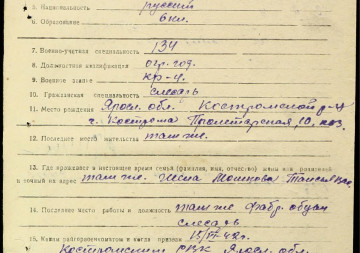 5. Национальность русский
6. Образование 6 кл.
7. Военно-учетная специальность 134
8. Должностная квалификация стр. год.
9. Военное звание кр-ц.
10. Гражданская специальность слесарь
11. Место рождения Яросл. обл. Костромской р-н
г. Кострома Пролетарская, 10, кв.
12. Последнее место жительства там же.
13. Где проживает в настоящее время семья (фамилия, имя, отчество) жены или родителей
и точный их адрес там же. Жена Мошкова Таисия
14. Последнее место работы и должность там же фабр. обуви
слесарь
15. Каким райгорвоенкоматом и когда призван 42г.
Костромским РВК Яросл. обл.